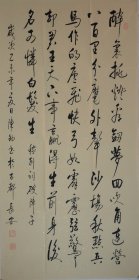 醉裏挑燈看劍夢回吹角連營
八百里分麾外聲沙場秋點兵
馬作的盧飛快弓如霹靂弦驚
却君王天下事贏得生前身後
名可憐白髮生 辛棄疾詞破陣子
歲次乙未年夏月陳於古都長安